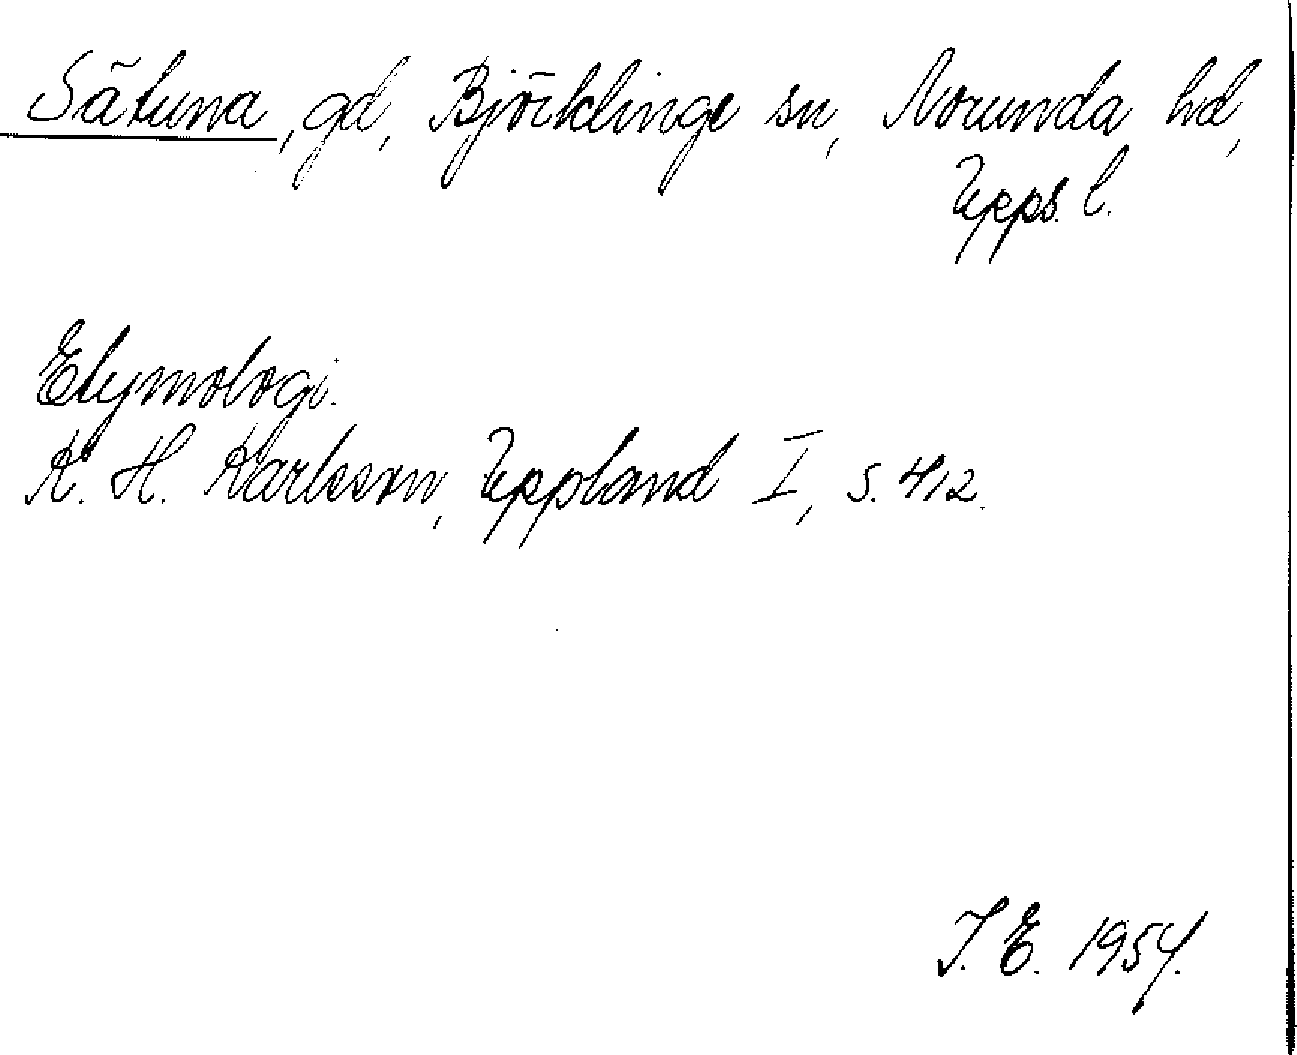 Sätuna, gd, Björklinge sn, Norunda hd,
Upps. l.
Etymologi.
K. H. Karlsson, Uppland I, s. 412.
I. E. 1954.